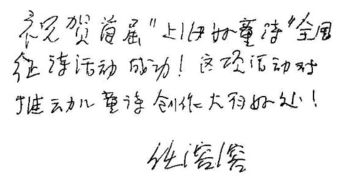 祝贺首届“上海好童诗”全国
征诗活动成功！这项活动对
推动儿童诗创作大有好处！
任溶溶